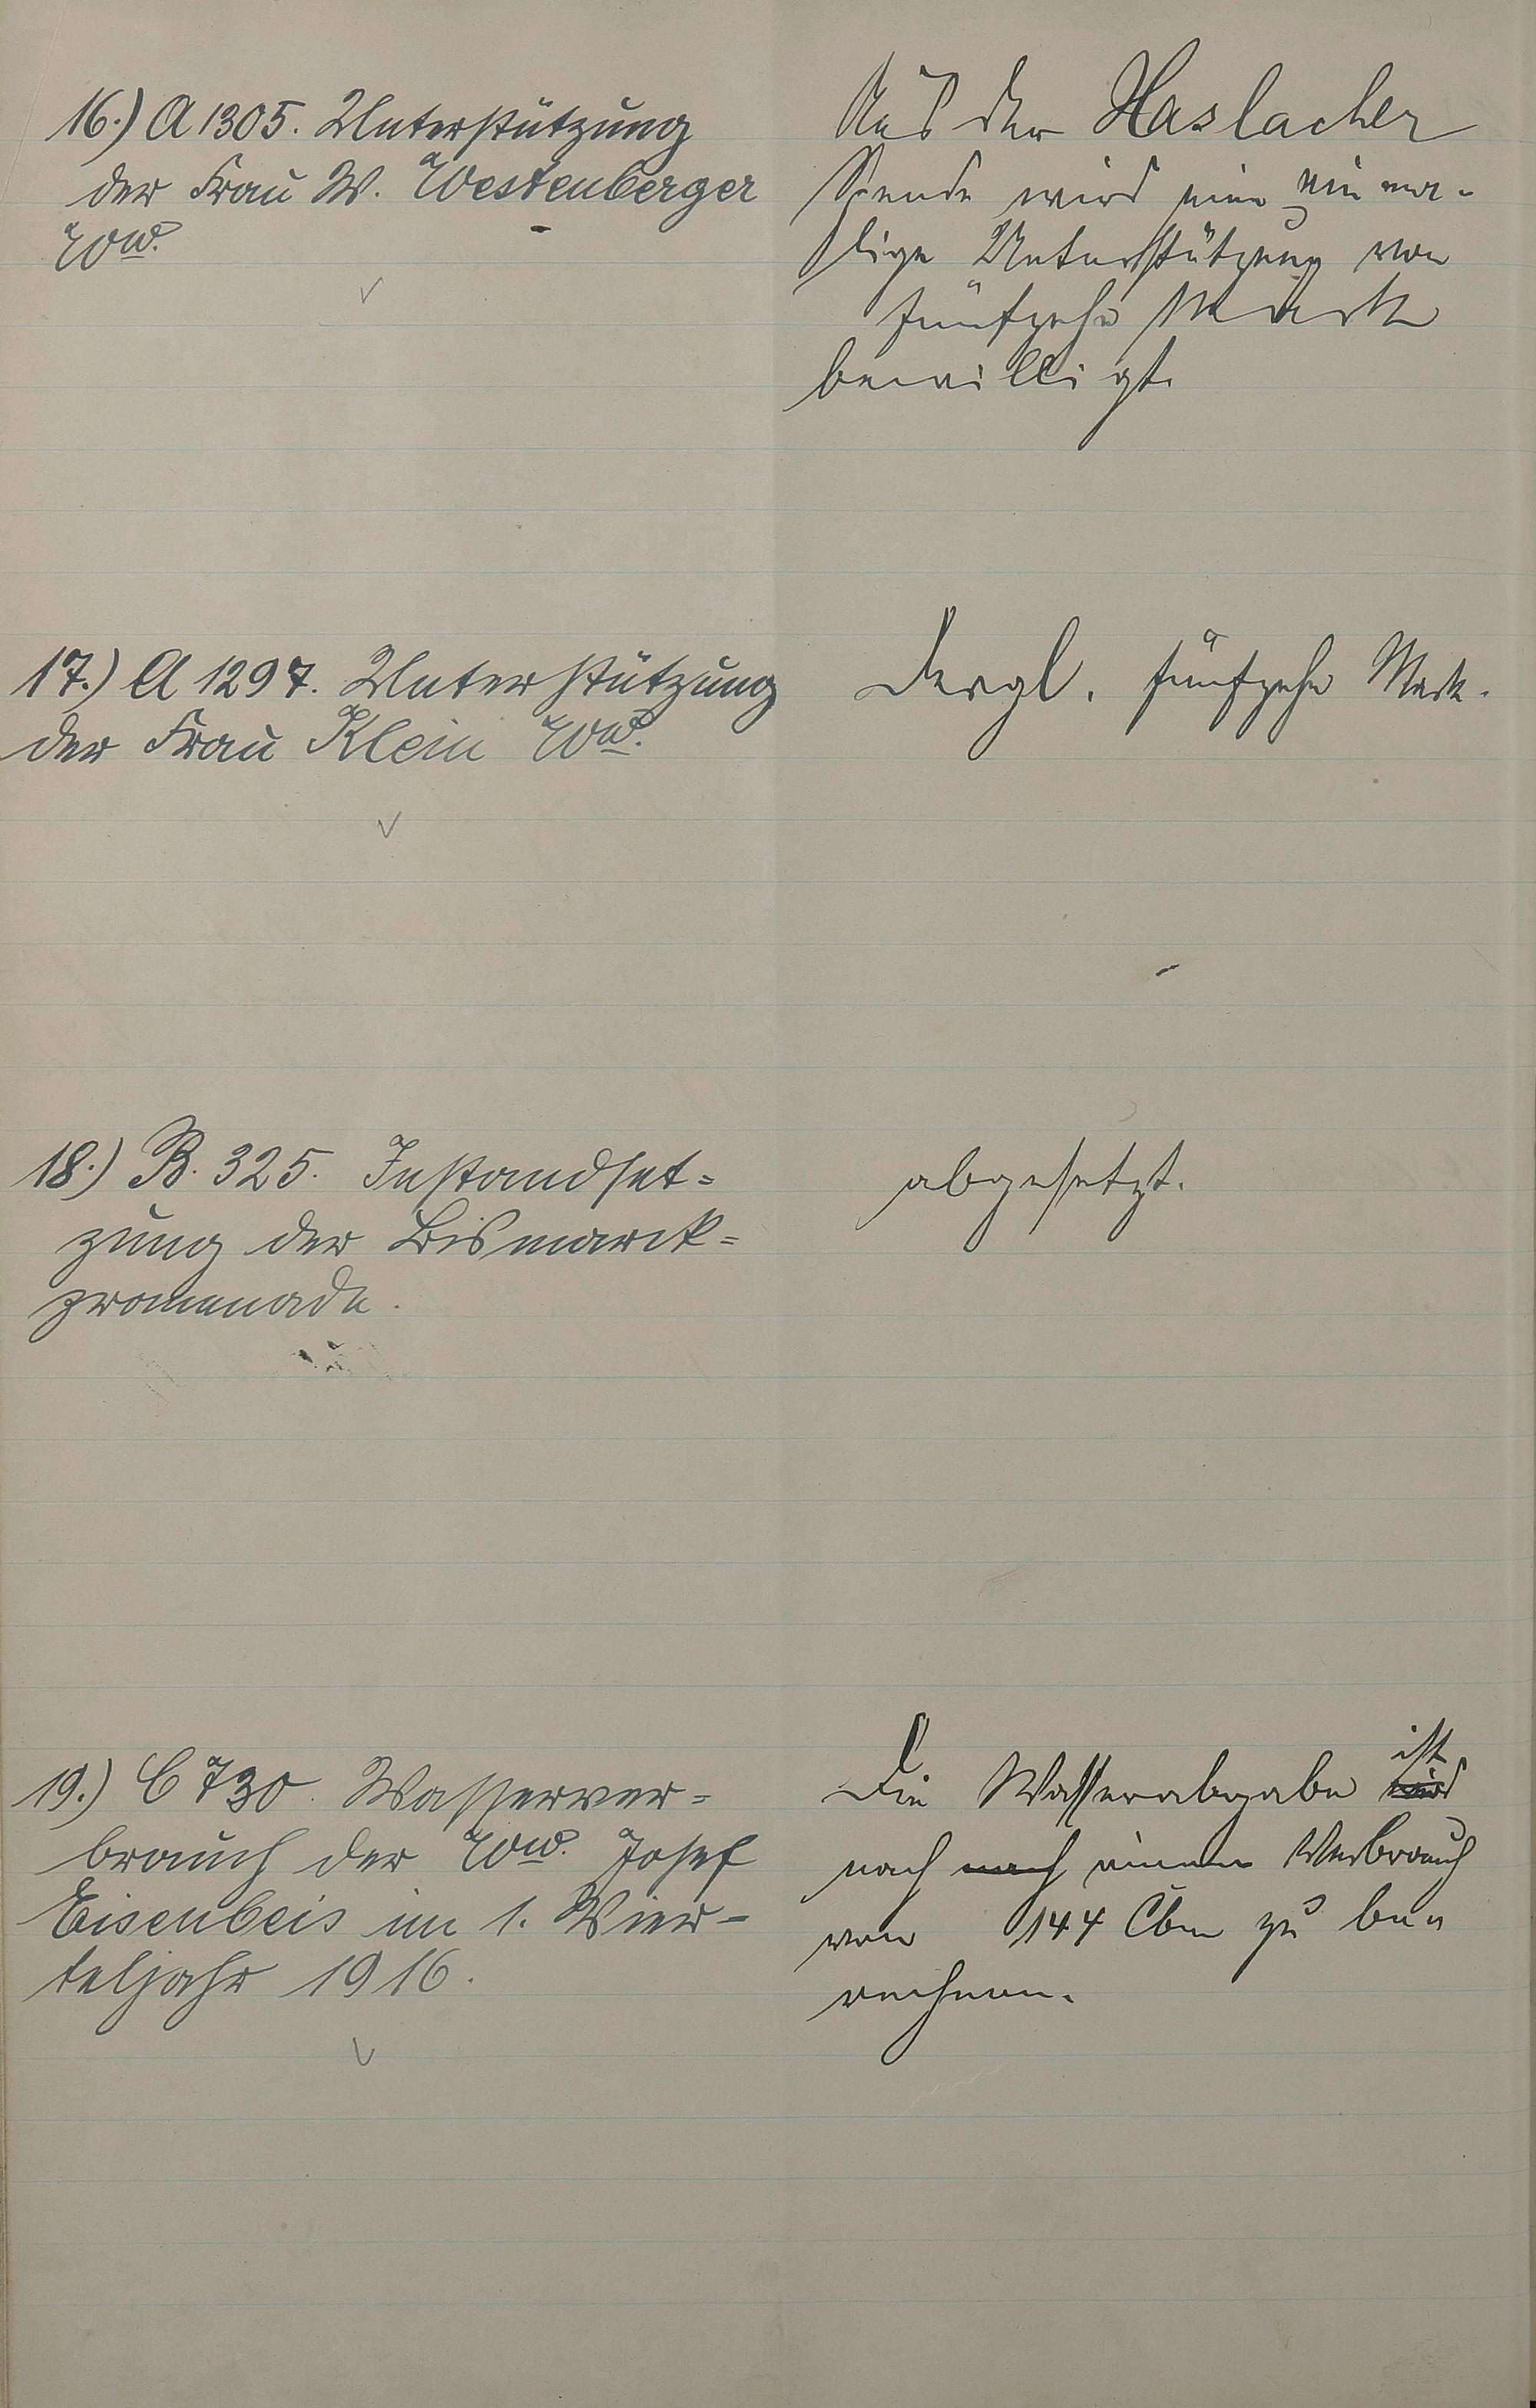 16.) A 1305. Unterstützung
der Frau W. Westenberger
Ww.
Aus der Haslacher
Spende wird eine einma-
lige Unterstützung von
fünfzehn Mark
bewilligt.
17.) A 1297. Unterstützung
der Frau Klein Ww.
Dergl. fünfzehn Mark.
18.) B. 325. Instandset=
zung der Bismarck=
promenade.
abgesetzt.
19.) C 730. Wasserver=
brauch der Ww. Josef
Eisenbeis im 1. Vier-
teljahr 1916.
Die Wasserabgabe wird ist
nach nach einem Verbrauch
von 144 Cbm zu be=
rechnen.